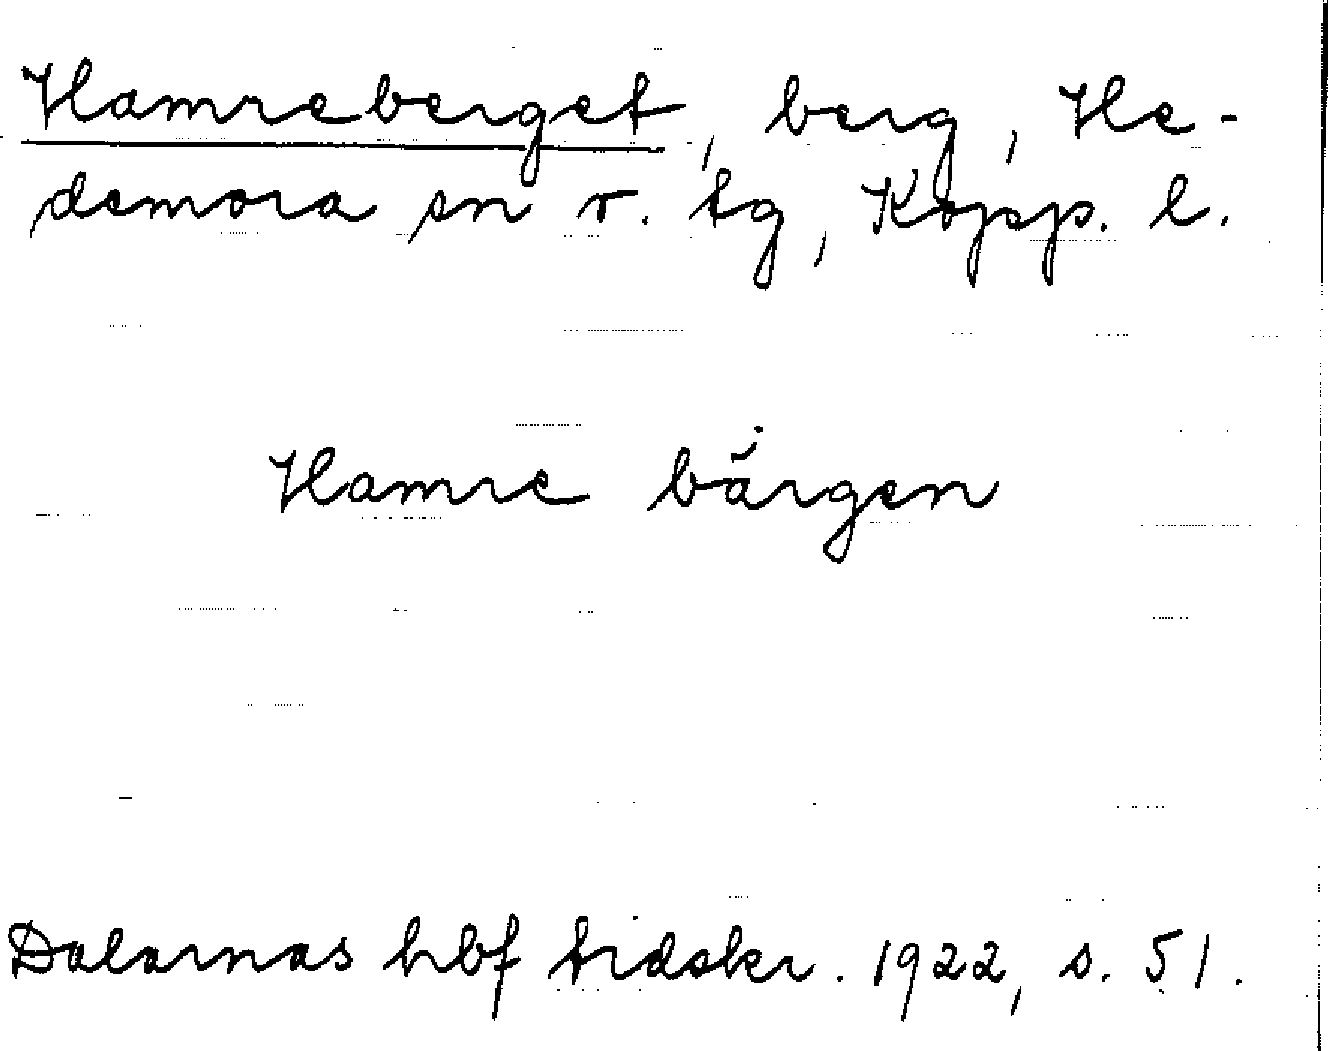 Hamreberget, berg, He-
demora sn o. tg, Kopp. l.
Hamre bärgen
Dalarnas hbf tidskr. 1922, s. 51.